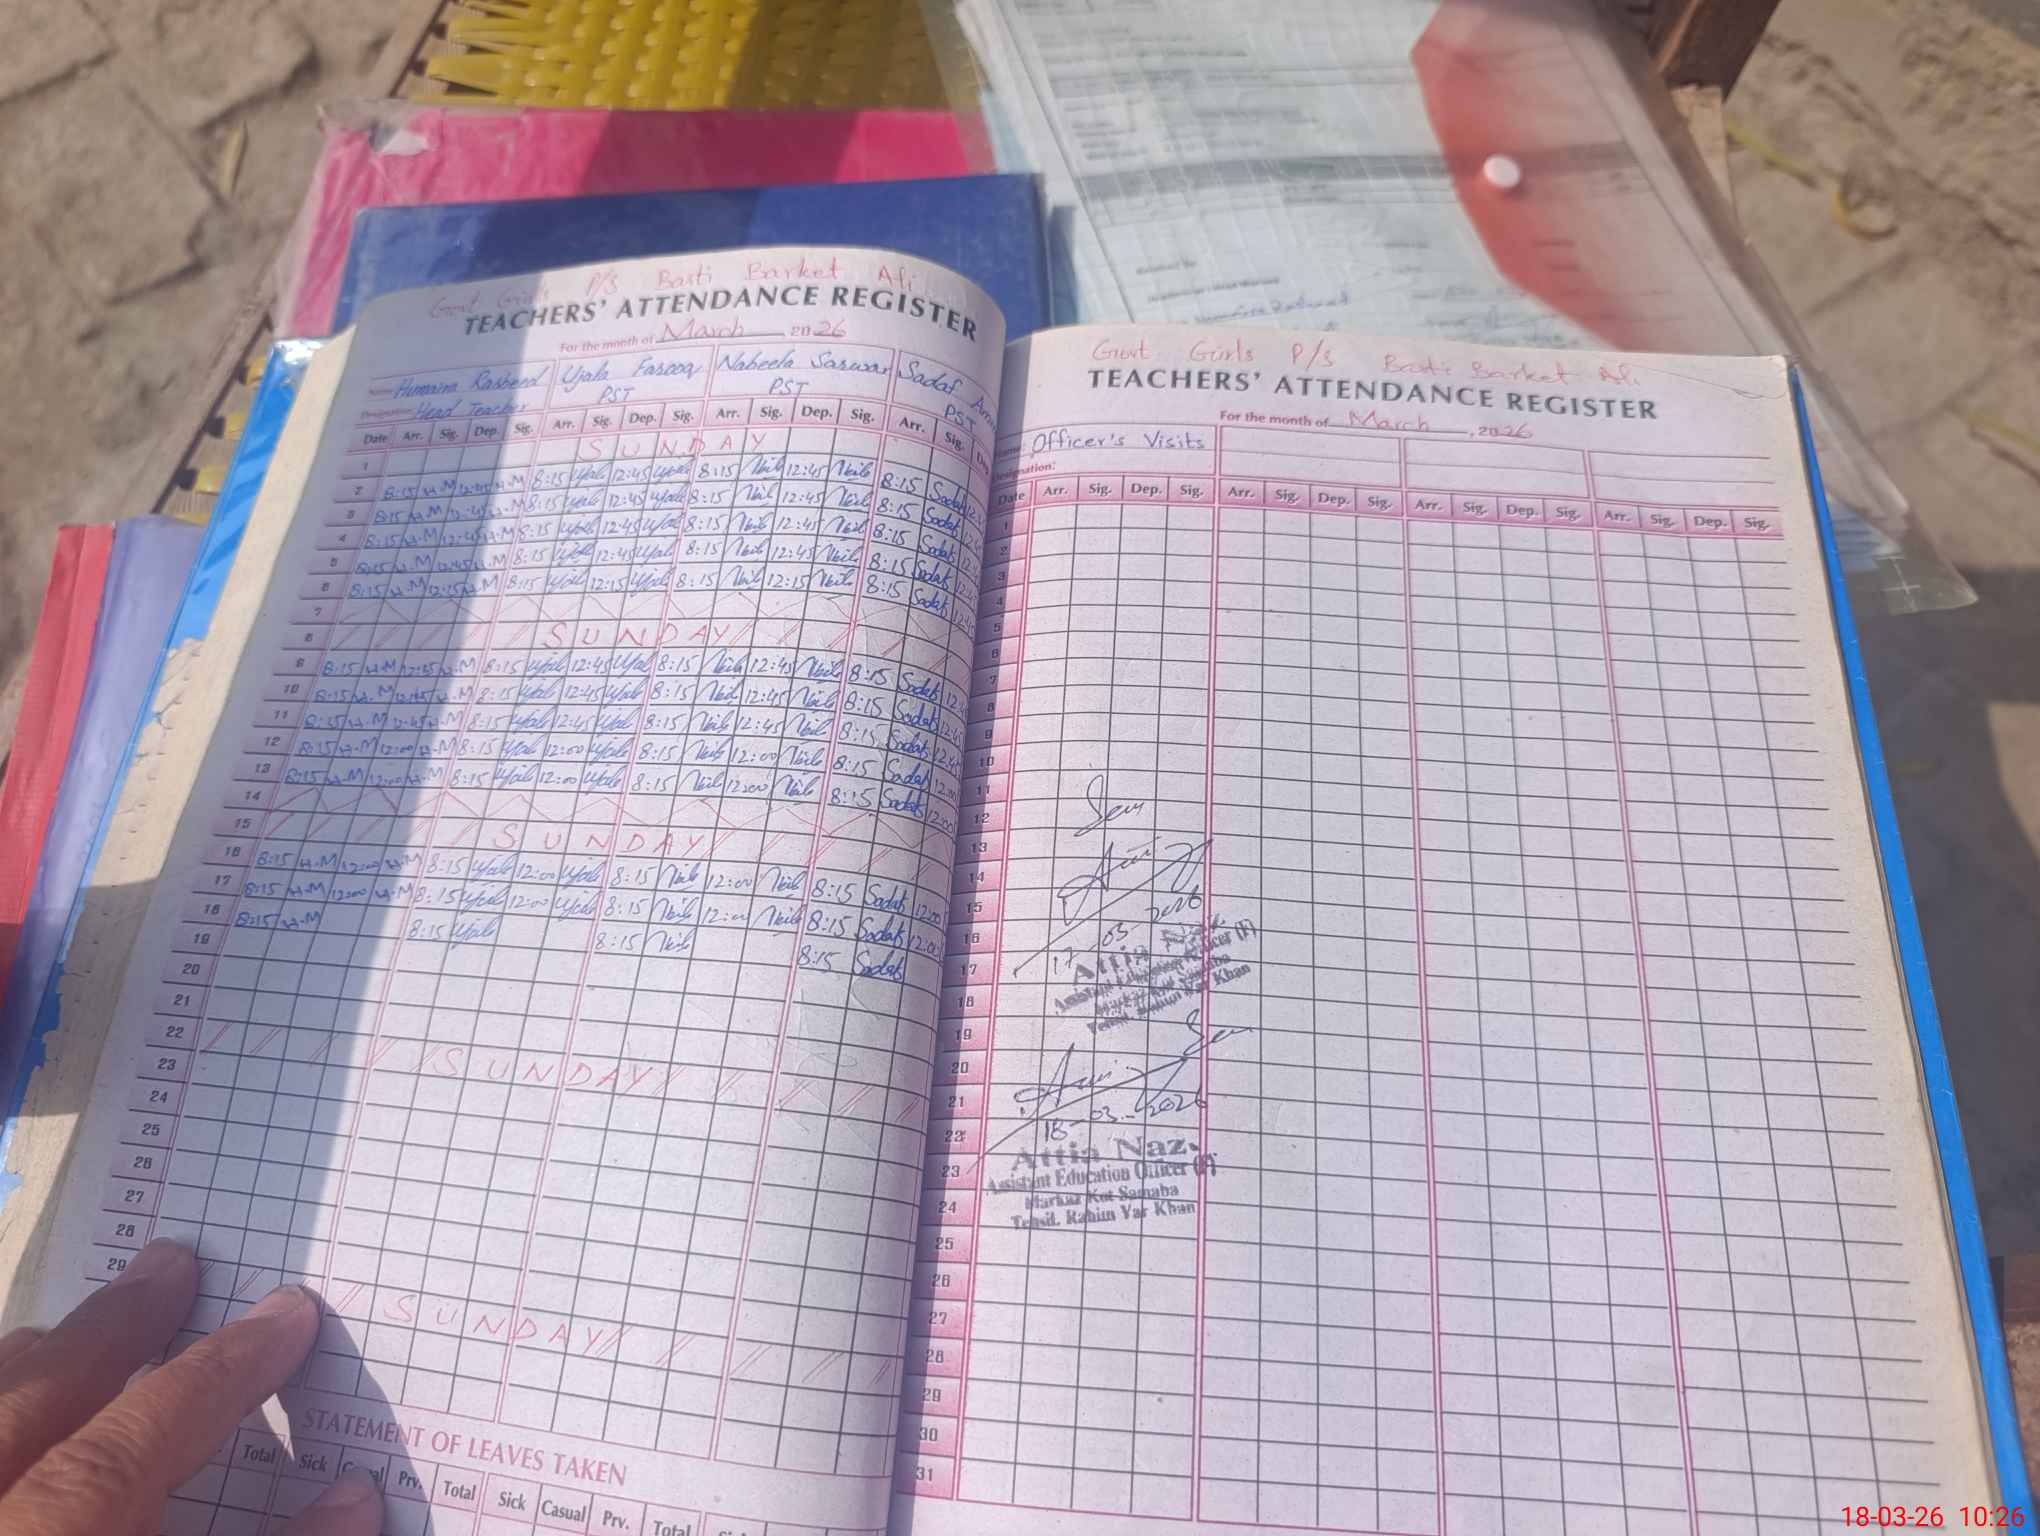 Govt Girls P/S Basti Barket Ali
TEACHERS' ATTENDANCE REGISTER
For the month of March 2026
Name: Humaira Rasheed Ujala Farooq Nabeela Sarwar Sadaf
Designation: Head Teacher PST PST PST
Date Arr. Sig. Dep. Sig. Arr. Sig. Dep. Sig. Arr. Sig. Dep. Sig. Arr. Sig. Dep.
1 SUNDAY
2 8:15 H.M 12:45 H.M 8:15 Ujala 12:45 Ujala 8:15 Nbil 12:45 Nbil 8:15 Sadaf
3 8:15 H.M 12:45 H.M 8:15 Ujala 12:45 Ujala 8:15 Nbil 12:45 Nbil 8:15 Sadaf
4 8:15 H.M 12:45 H.M 8:15 Ujala 12:45 Ujala 8:15 Nbil 12:45 Nbil 8:15 Sadaf
5 8:15 H.M 12:45 H.M 8:15 Ujala 12:45 Ujala 8:15 Nbil 12:45 Nbil 8:15 Sadaf
6 8:15 H.M 12:15 H.M 8:15 Ujala 12:15 Ujala 8:15 Nbil 12:15 Nbil 8:15 Sadaf
7
8 SUNDAY
9 8:15 H.M 12:45 H.M 8:15 Ujala 12:45 Ujala 8:15 Nbil 12:45 Nbil 8:15 Sadaf
10 8:15 H.M 12:45 H.M 8:15 Ujala 12:45 Ujala 8:15 Nbil 12:45 Nbil 8:15 Sadaf
11 8:15 H.M 12:45 H.M 8:15 Ujala 12:45 Ujala 8:15 Nbil 12:45 Nbil 8:15 Sadaf
12 8:15 H.M 12:00 H.M 8:15 Ujala 12:00 Ujala 8:15 Nbil 12:00 Nbil 8:15 Sadaf
13 8:15 H.M 12:00 H.M 8:15 Ujala 12:00 Ujala 8:15 Nbil 12:00 Nbil 8:15 Sadaf 12:00
14
15 SUNDAY
16 8:15 H.M 12:00 H.M 8:15 Ujala 12:00 Ujala 8:15 Nbil 12:00 Nbil 8:15 Sadaf 12:00
17 8:15 H.M 12:00 H.M 8:15 Ujala 12:00 Ujala 8:15 Nbil 12:00 Nbil 8:15 Sadaf 12:00
18 8:15 H.M 8:15 Ujala 8:15 Nbil 8:15 Sadaf
19
20
21
22 SUNDAY
23
24
25
26
27
28
29 SUNDAY
STATEMENT OF LEAVES TAKEN
Total Sick Casual Prv. Total Sick Casual Prv. Total
Govt Girls P/S Basti Barket Ali
TEACHERS' ATTENDANCE REGISTER
For the month of March, 2026
Name: Officer's Visits
Designation:
Date Arr. Sig. Dep. Sig. Arr. Sig. Dep. Sig. Arr. Sig. Dep. Sig. Arr. Sig. Dep. Sig.
1
2
3
4
5
6
7
8
9
10
11
12 Seen
13
14
15
16 17-03-2026
17 Attia
18 Assistant Education Officer (F)
Markaz Kot Samaba
Tehsil. Rahim Yar Khan
19 Seen
20
21
22 18-03-2026
23 Attia Naz
Assistant Education Officer (F)
24 Markaz Kot Samaba
Tehsil. Rahim Yar Khan
25
26
27
28
29
30
31
18-03-26 10:26